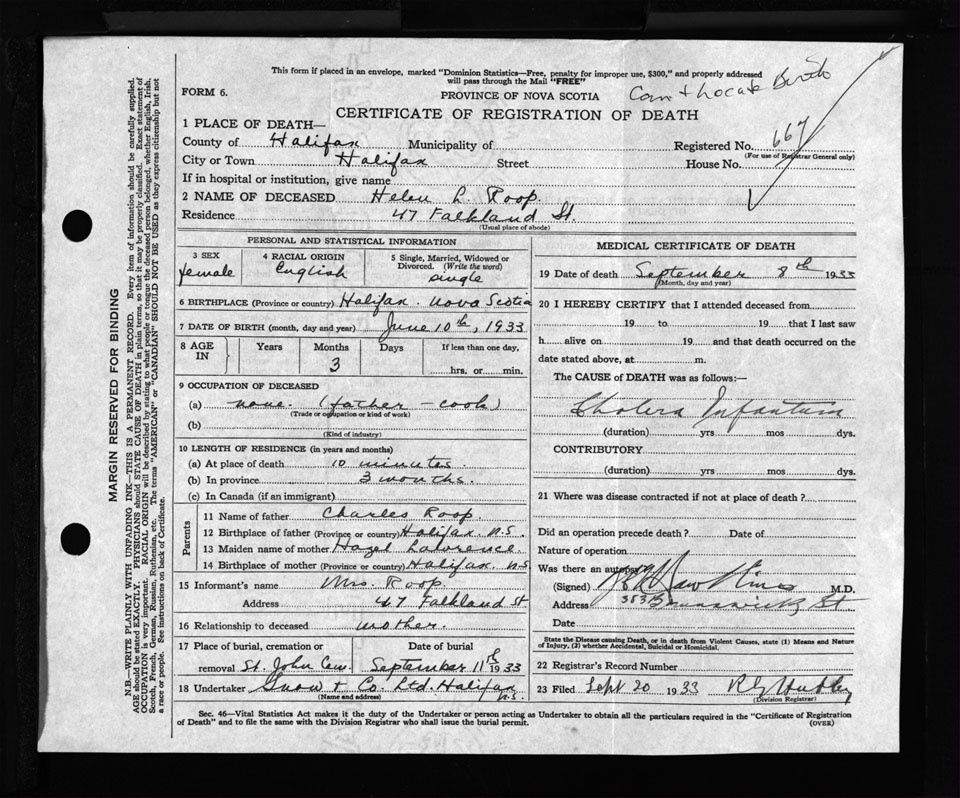 This form if placed in an envelope, marked "Dominion Statistics—Free, penalty for improper use, $300," and properly addressed
will pass through the Mail "FREE"
FORM 6.
PROVINCE OF NOVA SCOTIA
Corr + Locate Birth
CERTIFICATE OF REGISTRATION OF DEATH
1 PLACE OF DEATH—
County of Halifax Municipality of Registered No. 667
(For use of Registrar General only)
City or Town Halifax Street House No.
If in hospital or institution, give name
2 NAME OF DECEASED Helen L. Roop.
Residence 47 Falkland St
(Usual place of abode)
PERSONAL AND STATISTICAL INFORMATION
3 SEX 4 RACIAL ORIGIN 5 Single, Married, Widowed or Divorced. (Write the word)
female English single
6 BIRTHPLACE (Province or country) Halifax. Nova Scotia
7 DATE OF BIRTH (month, day and year) June 10th, 1933
8 AGE IN Years Months Days If less than one day,
3 hrs. or min.
9 OCCUPATION OF DECEASED
(a) none. (father - cook)
(Trade or occupation or kind of work)
(b)
(Kind of industry)
10 LENGTH OF RESIDENCE (in years and months)
(a) At place of death 10 minutes.
(b) In province 3 months.
(c) In Canada (if an immigrant)
Parents
11 Name of father Charles Roop.
12 Birthplace of father (Province or country) Halifax. N.S.
13 Maiden name of mother Hazel Lawrence.
14 Birthplace of mother (Province or country) Halifax. N.S
15 Informant's name Mrs. Roop.
Address 47 Falkland St
16 Relationship to deceased mother.
17 Place of burial, cremation or Date of burial
removal St. John Cem. September 11th 1933
18 Undertaker Snow + Co. Ltd. Halifax N.S.
(Name and address)
MEDICAL CERTIFICATE OF DEATH
19 Date of death September 8th 1933
(Month, day and year)
20 I HEREBY CERTIFY that I attended deceased from
19 to 19 that I last saw
h alive on 19 and that death occurred on the
date stated above, at m.
The CAUSE of DEATH was as follows:—
Cholera Infantum
(duration) yrs mos dys.
CONTRIBUTORY
(duration) yrs mos dys.
21 Where was disease contracted if not at place of death?
Did an operation precede death? Date of
Nature of operation
Was there an autopsy
(Signed) M.D.
Address Brunswick St
Date
State the Disease causing Death, or in death from Violent Causes, state (1) Means and Nature
of Injury, (2) whether Accidental, Suicidal or Homicidal.
22 Registrar's Record Number
23 Filed Sept 20 1933
(Division Registrar)
Sec. 46—Vital Statistics Act makes it the duty of the Undertaker or person acting as Undertaker to obtain all the particulars required in the "Certificate of Registration
of Death" and to file the same with the Division Registrar who shall issue the burial permit. (OVER)
MARGIN RESERVED FOR BINDING
N.B.—WRITE PLAINLY WITH UNFADING INK—THIS IS A PERMANENT RECORD. Every item of information should be carefully supplied.
AGE should be stated EXACTLY. PHYSICIANS should STATE CAUSE OF DEATH in plain terms, so that it may be properly classified. Exact statement of
OCCUPATION is very important. RACIAL ORIGIN will be described by stating to what people or tongue the deceased person belonged, whether English, Irish,
Scotch, French, German, Russian, Ruthenian, etc. The terms "AMERICAN" or "CANADIAN" SHOULD NOT BE USED as they express citizenship but not
a race or people. See instructions on back of Certificate.